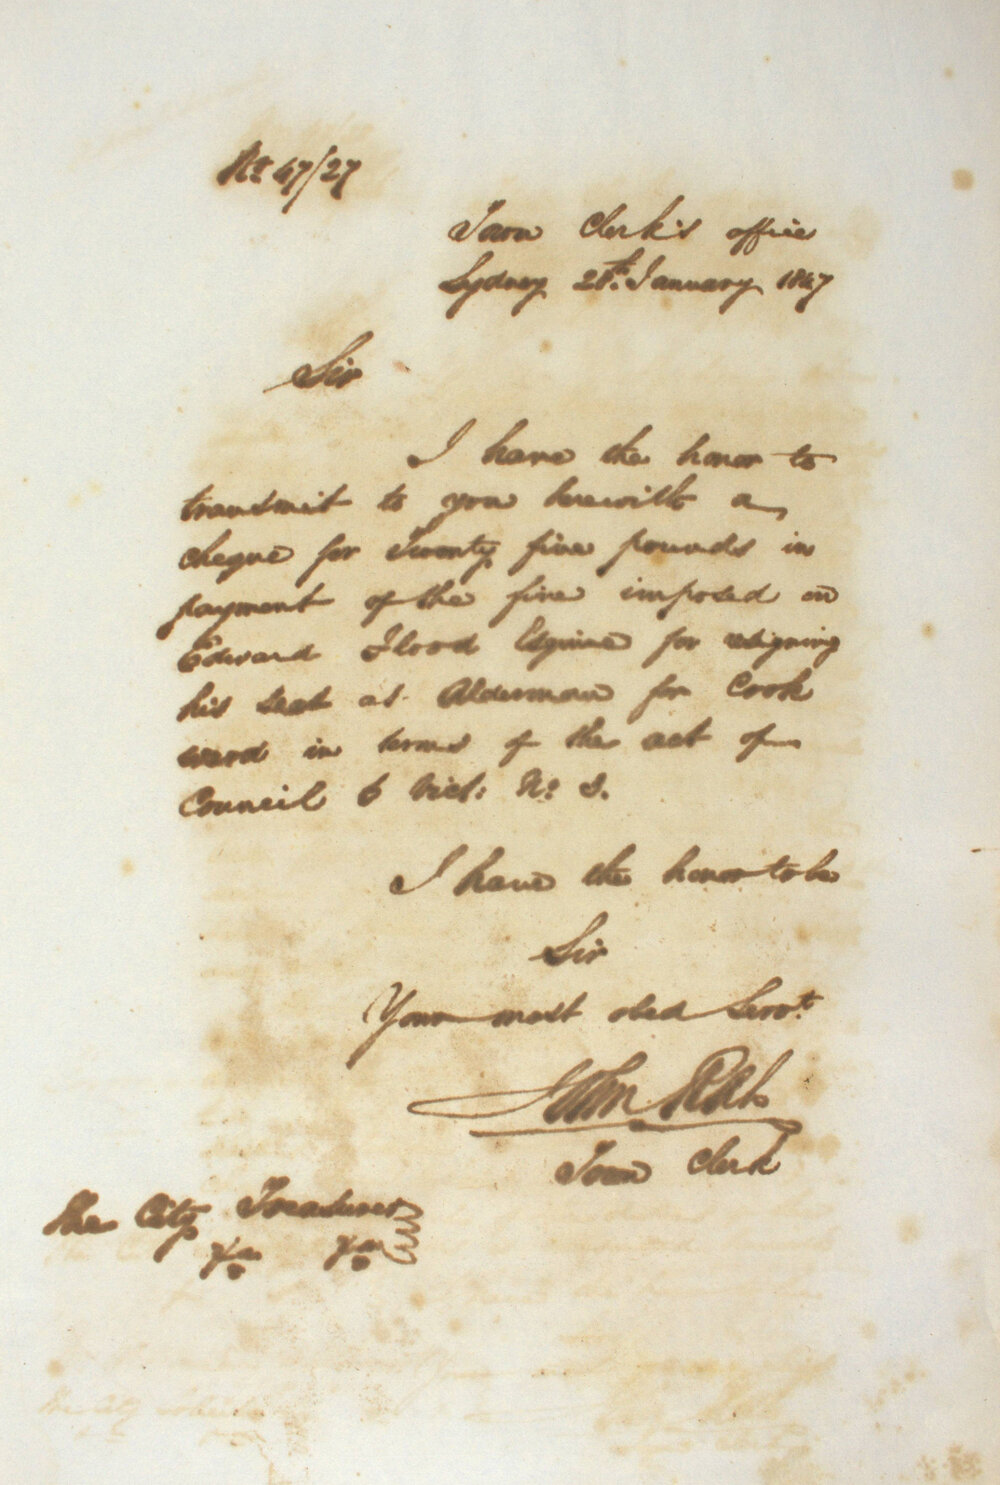 No 47/27
Town Clerk's office
Sydney 28th January 1847
Sir
I have the honor to
transmit to you herewith a
cheque for Twenty five pounds in
payment of the fine imposed on
Edward Flood Esquire for resigning
his seat as Alderman for Cook
ward in terms of the act of
Council 6 Vict: No 3.
I have the honor to be
Sir
Your most obed Servt
John
Town Clerk
The City Treasurer